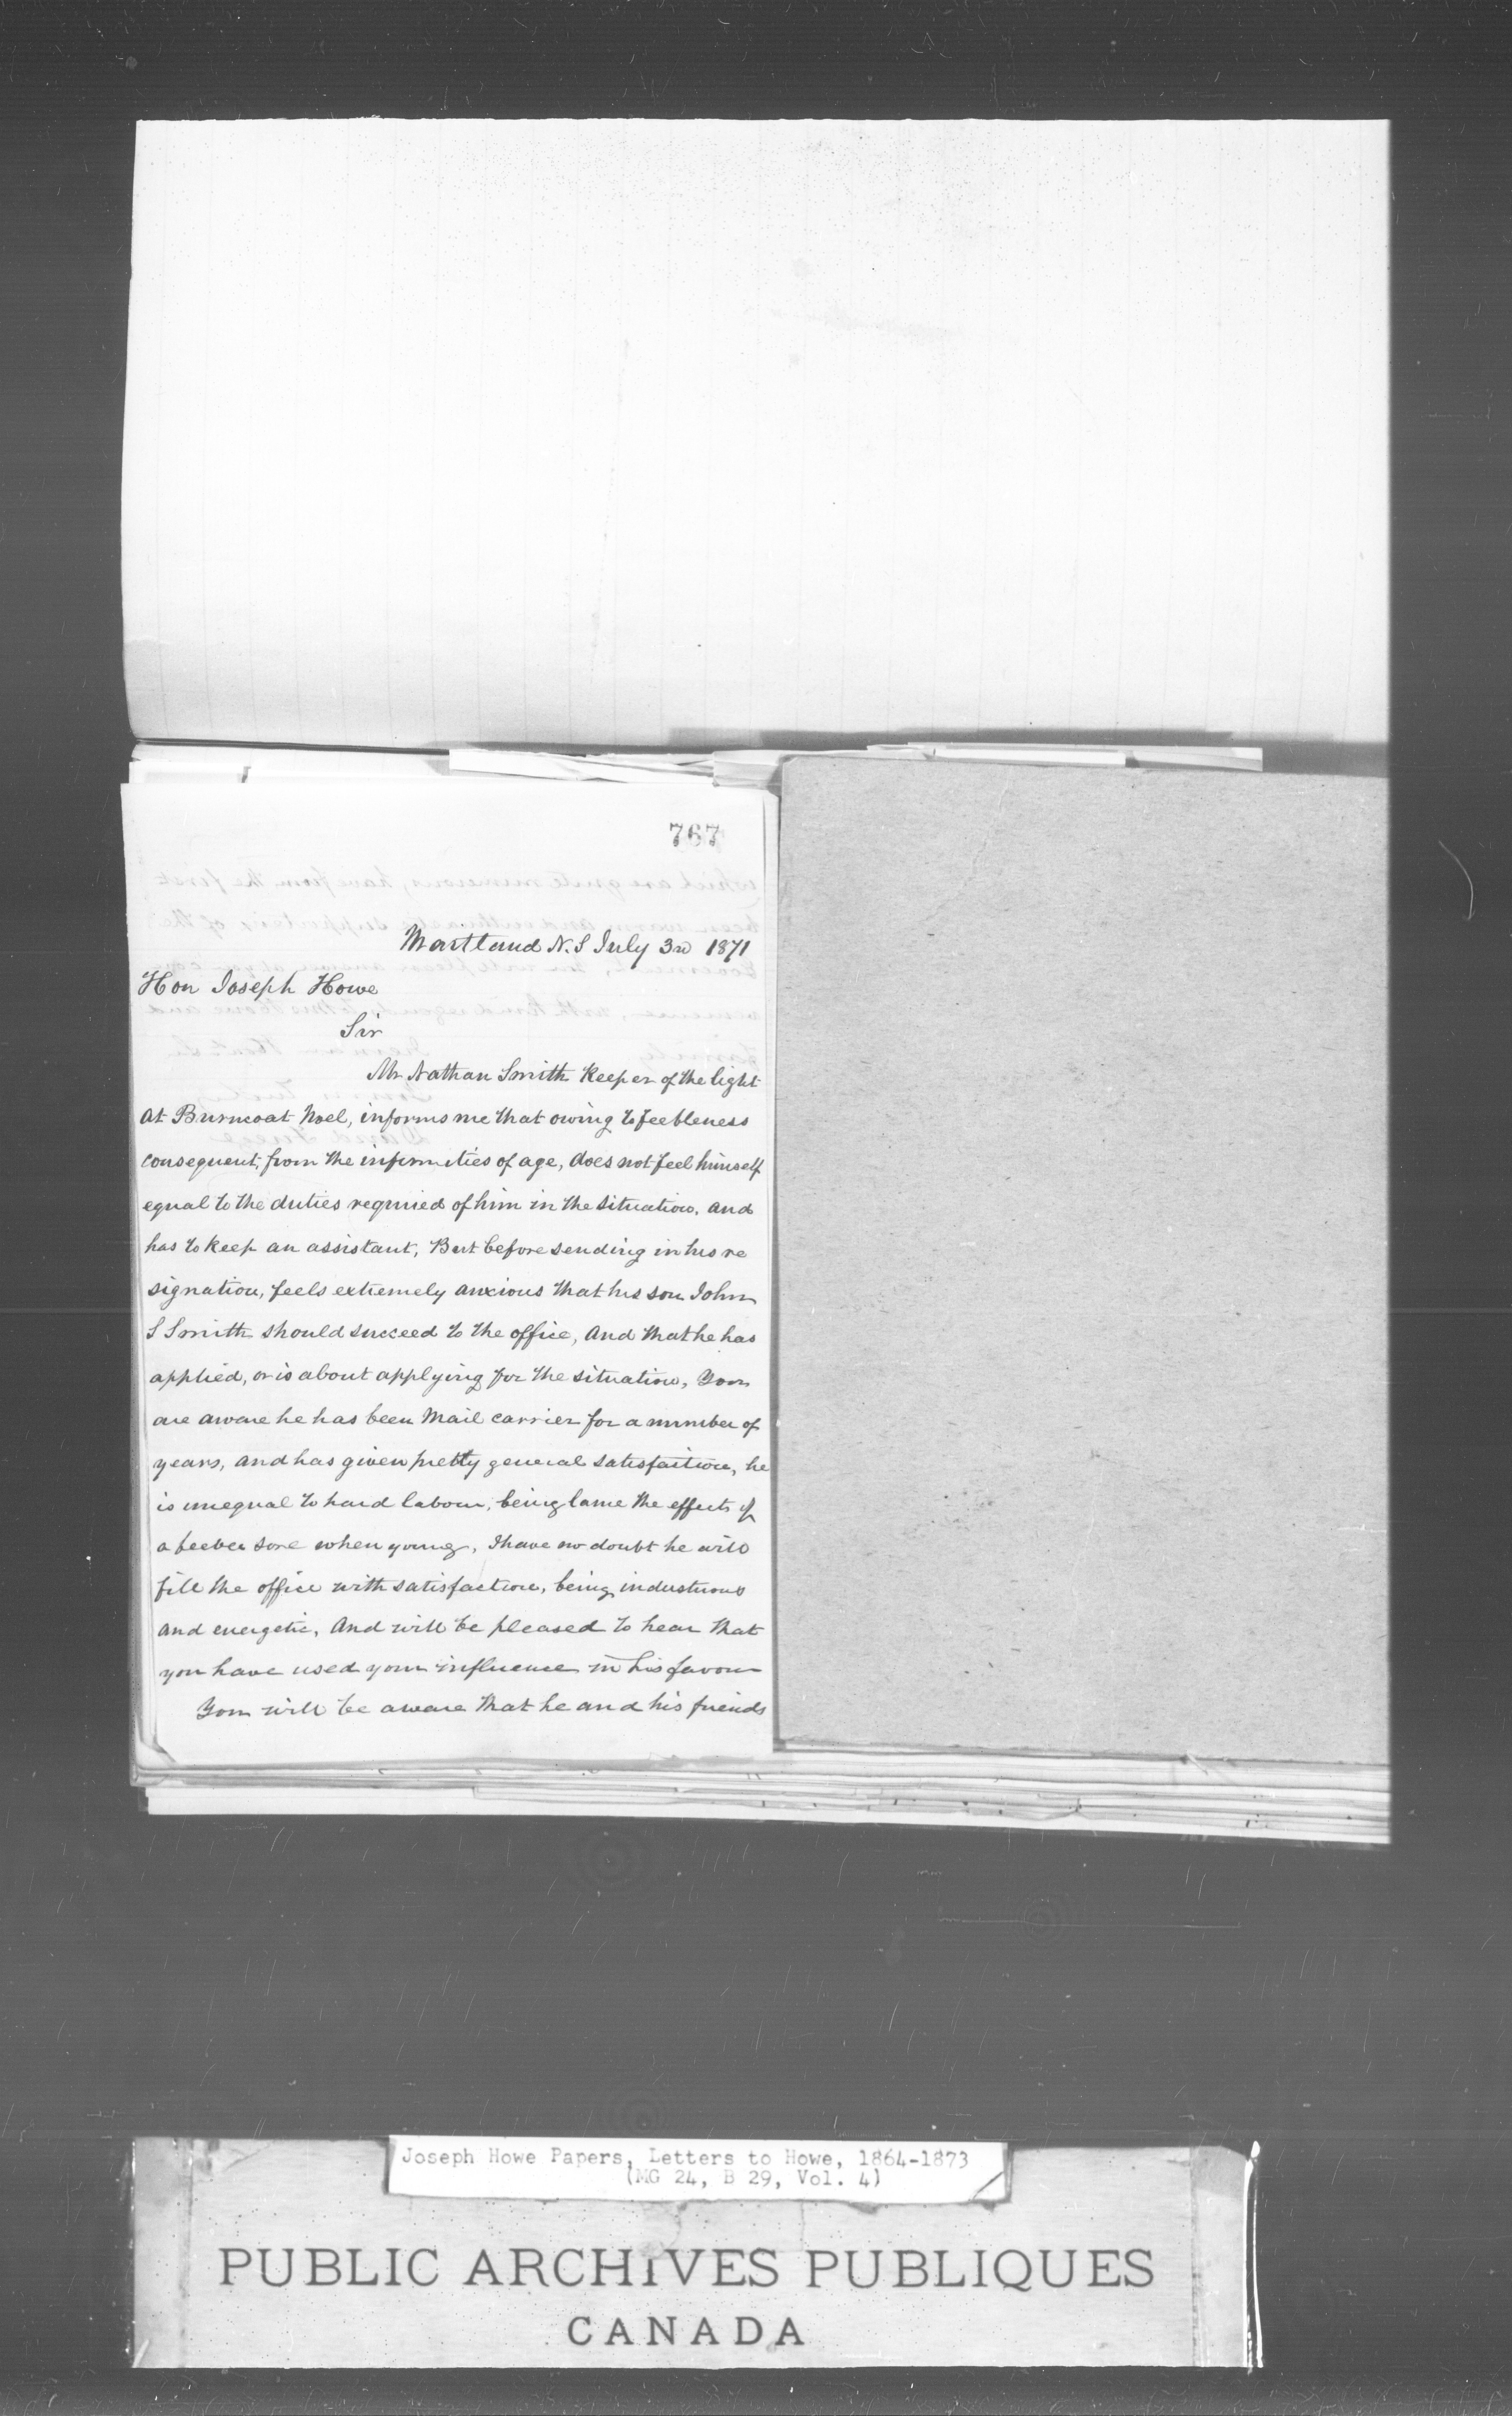 767
Maitland N.S July 3rd 1871
Hon Joseph Howe
Sir
Mr Nathan Smith Keeper of the light
at Burncoat Noel, informs me that owing to feebleness
consequent, from the infirmities of age, does not feel himself
equal to the duties required of him in the situation, and
has to keep an assistant, But before sending in his re
signation, feels extremely anxious that his son John
S Smith should succeed to the office, and that he has
applied, or is about applying for the situation, You
are aware he has been Mail carrier for a number of
years, and has given pretty general satisfaction, he
is unequal to hard labour, being lame the effects of
a feever sore when young, I have no doubt he will
fill the office with satisfaction, being industrious
and energetic, And will be pleased to hear that
you have used your influence in his favour
You will be aware that he and his friends
Joseph Howe Papers, Letters to Howe, 1864-1873
(MG 24, B 29, Vol. 4)
PUBLIC ARCHIVES PUBLIQUES
CANADA